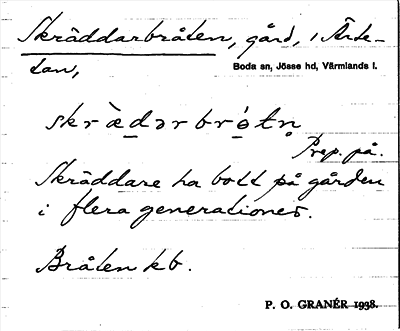 Skräddarbråten, gård, i Ärte-
tan,
Boda sn, Jösse hd, Värmlands l.
skrädərbrótn̥
Prep. på.
Skräddare ha bott på gården
i flera generationer.
Bråten kb.
P. O. GRANÉR 1938.